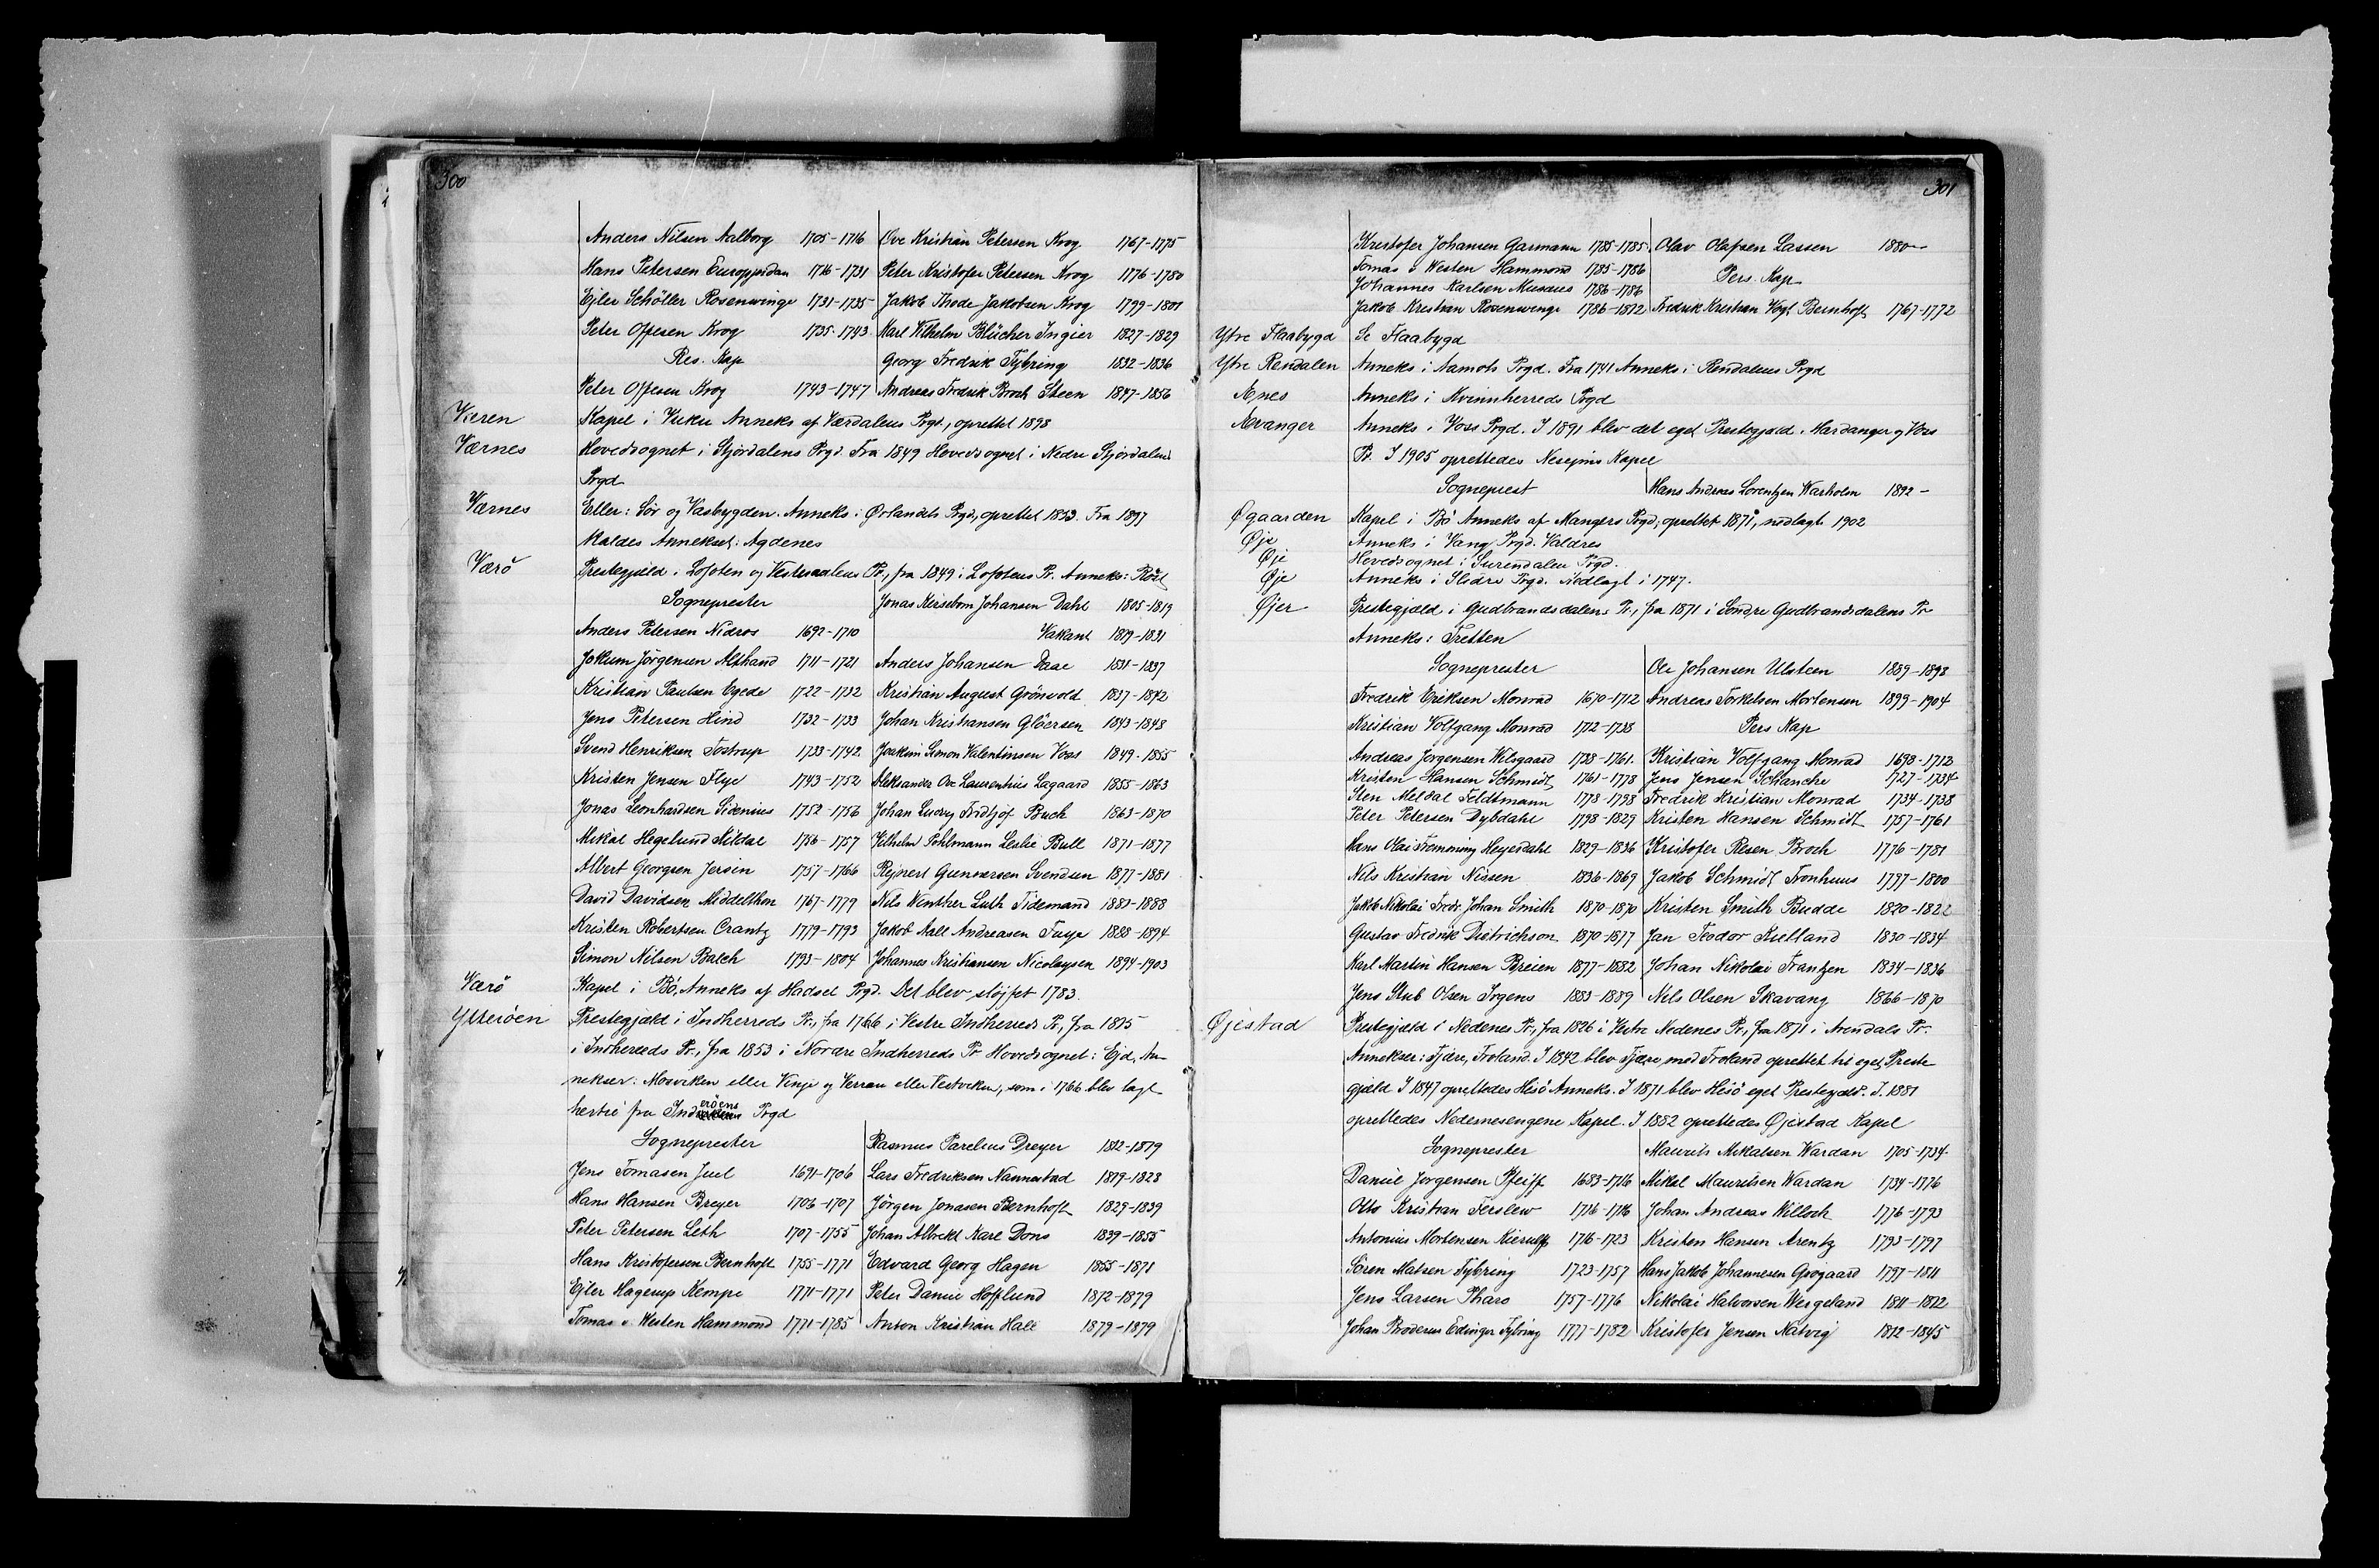 300
Anders Nilsen Aalborg 1705-1716 Ove Kristian Petersen Krog 1767-1775
Hans Petersen Europæidan 1716-1731 Peter Kristofer Petersen Krog 1776-1780
Ejler Schöller Rosenwinge 1731-1735 Jakob Thode Jakobsen Krog 1799-1801
Peter Offesen Krog 1735-1743 Karl Vilhelm Blücher Ingier 1827-1829
Res. Kap Georg Fredrik Tybring 1832-1836
Peter Offesen Krog 1743-1747 Andreas Fredrik Broch Steen 1847-1856
Væren Kapel i Vuku Anneks af Værdalens Prgd., oprettet 1898
Værnes Hovedsognet i Stjördalens Prgd. Fra 1849 Hovedsognet i Nedre Stjördalens
Prgd
Værnes Eller: Sör og Vasbygden. Anneks i Ørlandets Prgd., oprettet 1853. Fra 1897
kaldes Annekset: Agdenes
Værö Prestegjæld i Lofoten og Vesteraalens Pr., fra 1849 i Lofotens Pr. Anneks: Röst
Sogneprester Jonas Kiersebom Johansen Dahl 1805-1819
Anders Petersen Nidros 1692-1710 Vakant 1819-1831
Jokum Jörgensen Alsthand 1711-1721 Anders Johansen Daae 1831-1837
Kristian Paulsen Egede 1722-1732 Kristian August Grönvold 1837-1842
Jens Petersen Hind 1732-1733 Johan Kristiansen Glöersen 1843-1848
Svend Henriksen Tostrup 1733-1742 Joakim Simon Valentinsen Voss 1849-1855
Kristen Jensen Flye 1743-1752 Aleksander Ove Laurentius Lagaard 1855-1863
Jonas Leonhardsen Sidenius 1752-1756 Johan Ludvig Fridtjof Buch 1863-1870
Mikal Hegelund Kildal 1756-1757 Vilhelm Pohlmann Leslie Bull 1871-1877
Albert Georgsen Jersin 1757-1766 Rejnert Gunnarsen Svendsen 1877-1881
David Davidsen Middelthon 1767-1779 Nils Winther Luth Tidemand 1881-1888
Kristen Robertsen Crantz 1779-1793 Jakob Aall Andreasen Faye 1888-1894
Simon Nilsen Balch 1793-1804 Johannes Kristiansen Nicolaysen 1894-1903
Værö Kapel i Bö, Anneks af Hadsel Prgd. Det blev slöjfet 1783.
Ytteröen Prestegjæld i Indherreds Pr., fra 1766 i Vestre Indherreds Pr., fra 1815
i Indherreds Pr., fra 1853 i Nordre Indherreds Pr Hovedsognet: Ejd, An-
nekser: Mosviken eller Vinje og Verran eller Vestviken, som i 1766 blev lagt
hertil fra Inderöens Prgd
Sogneprester Rasmus Parelius Dreyer 1812-1819
Jens Tomasen Juel 1691-1706 Lars Fredriksen Nannestad 1819-1828
Hans Hansen Breyer 1706-1707 Jörgen Jonasen Bernhoft 1829-1839
Peter Petersen Leth 1707-1755 Johan Albrekt Karl Dons 1839-1855
Hans Kristofersen Bernhoft 1755-1771 Edvard Georg Hagen 1855-1871
Ejler Hagerup Kempe 1771-1771 Peter Daniel Hofflund 1872-1879
Tomas v. Westen Hammond 1771-1785 Anton Kristian Hall 1879-1879
301
Kristofer Johansen Garmann 1785-1785 Olav Olafsen Lassen 1880-
Tomas v Westen Hammond 1785-1786 Pers. Kap
Johannes Karlsen Musæus 1786-1786
Jakob Kristian Rosenwinge 1786-1812 Fredrik Kristian Vogt Bernhoft 1767-1772
Ytre Flaabygd Se Flaabygd
Ytre Rendalen Anneks i Aamots Prgd. Fra 1741 Anneks i Rendalens Prgd
Ænes Anneks i Kvinnherreds Prgd
Ævanger Anneks i Voss Prgd. I 1891 blev det eget Prestegjæld i Hardanger og Voss
Pr. I 1905 oprettedes Nesejms Kapel
Sogneprest Hans Andreas Lorentzen Warholm 1892-
Øgaarden Kapel i Bö Anneks af Mangers Prgd, oprettet 1871, nedlagt 1902
Øje Anneks i Vang Prgd. Valdres
Øje Hovedsognet i Surendalen Prgd.
Øje Anneks i Slidre Prgd. Nedlagt i 1747.
Øjer Prestegjæld i Gudbrandsdalens Pr., fra 1871 i Söndre Gudbrandsdalens Pr
Anneks: Tretten
Sogneprester Ole Johansen Ulsteen 1889-1898
Fredrik Eriksen Monrad 1670-1712 Andreas Torkelsen Mortensen 1899-1904
Kristian Volfgang Monrad 1712-1738 Pers Kap
Andreas Jörgensen Welsgaard 1738-1761. Kristian Volfgang Monrad 1698-1712
Kristen Hansen Schmidt 1761-1778 Jens Jensen Schanche 1727-1734
Sten Meldal Feldtmann 1778-1798 Fredrik Kristian Monrad 1734-1738
Peter Petersen Dybdahl 1798-1829 Kristen Hansen Schmidt 1757-1761
Hans Olai Flemming Heyerdahl 1829-1836 Kristofer Resen Broch 1776-1781
Nils Kristian Nissen 1836-1869 Jakob Schmidt Tronhuus 1797-1800
Jakob Nikolai Fredr. Johan Smith 1870-1870 Kristen Smith Budde 1820-1822
Gustav Fredrik Dietrichson 1870-1877 Jan Teodor Kielland 1830-1834
Karl Martin Hansen Breien 1877-1882 Johan Nikolai Frantzen 1834-1836
Jens Stub Olsen Irgens 1883-1889 Nils Olsen Skavang 1866-1870
Øjestad Prestegjæld i Nedenes Pr., fra 1826 i Vestre Nedenes Pr., fra 1871 i Arendals Pr.
Annekser: Fjære, Froland. I 1842 blev Fjære med Froland oprettet til eget Preste
gjæld I 1847 oprettedes Hisö Anneks. I 1871 blev Hisö eget Prestegjæld. I. 1881
oprettedes Nedenesengene Kapel. I 1882 oprettedes Øjestad Kapel
Sogneprester Maurits Mikalsen Wardan 1705-1734
Daniel Jörgensen Pfeiff 1683-1716 Mikal Mauritsen Wardan 1734-1776
Otto Kristian Terslew 1716-1716 Johan Andreas Willoch 1776-1793
Antonius Mortensen Kierulff 1716-1723 Kristen Hansen Arentz 1793-1797
Sören Matsen Tybring 1723-1757 Hans Jakob Johannesen Grögaard 1797-1811
Jens Larsen Pharo 1757-1776 Nikolai Halvorsen Wergeland 1811-1812
Johan Broderus Edinger Tybring 1777-1782 Kristofer Jensen Natvig 1812-1845